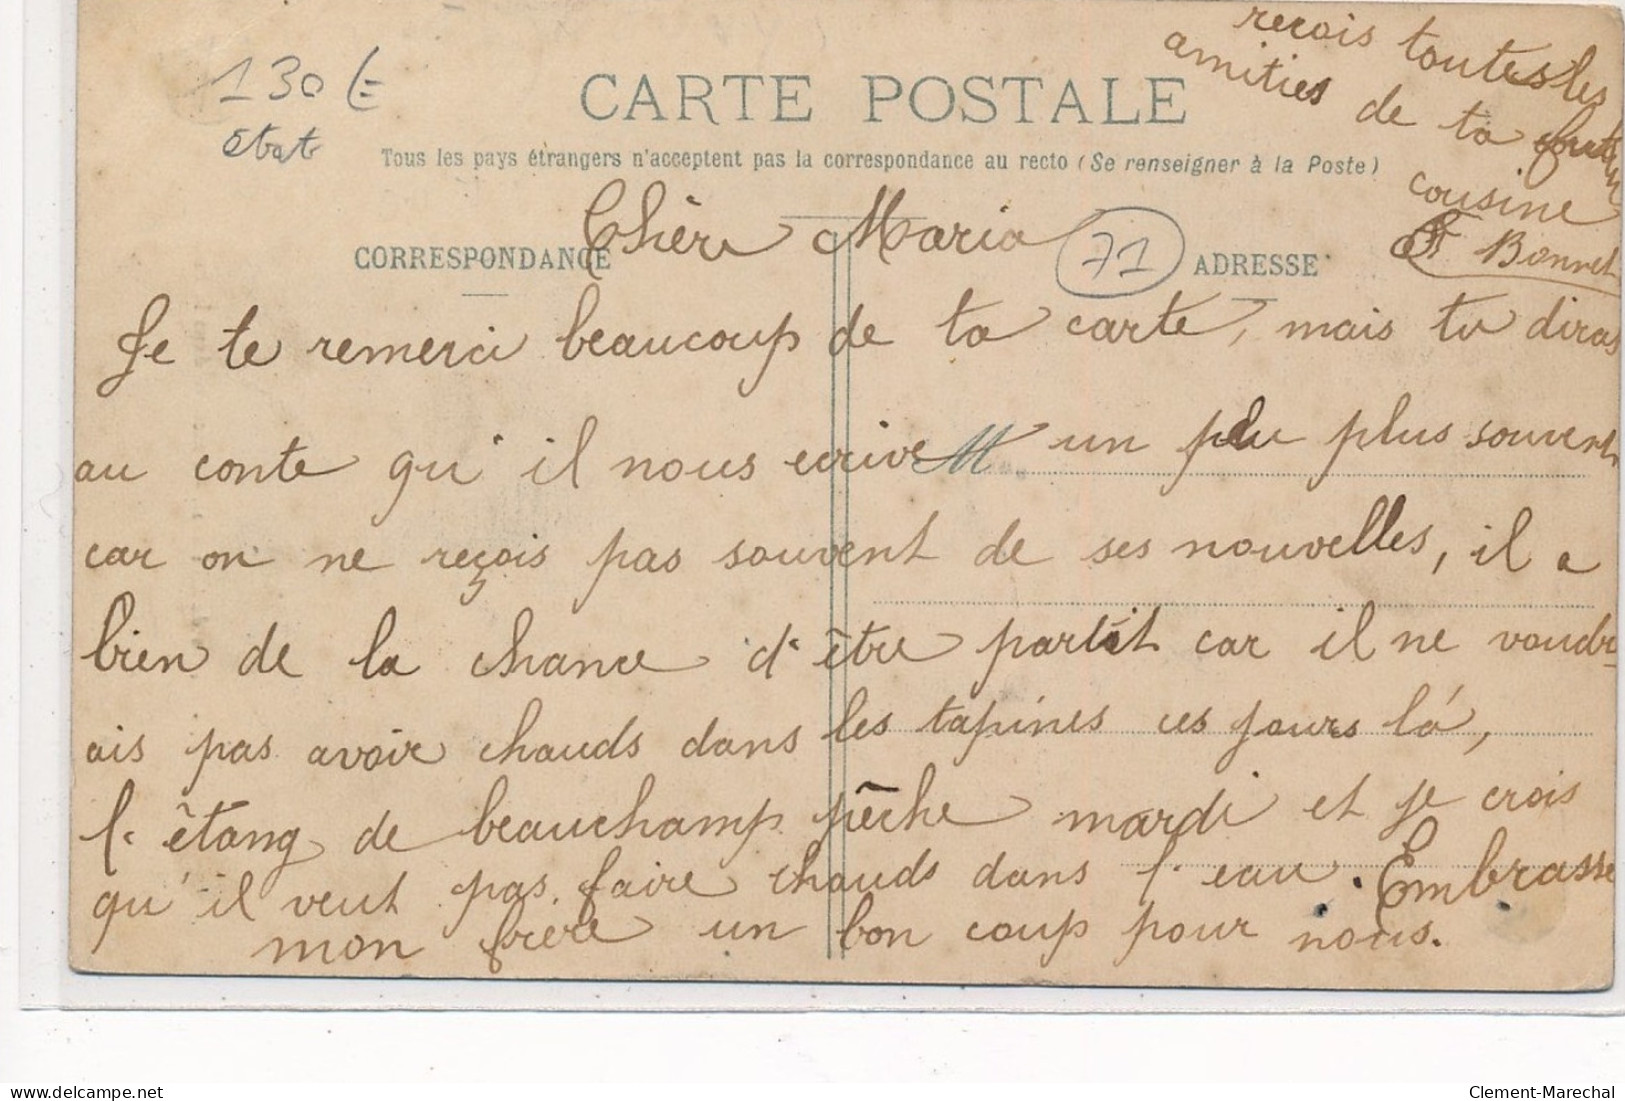 130 €
état
CARTE POSTALE
Tous les pays étrangers n'acceptent pas la correspondance au recto (Se renseigner à la Poste)
CORRESPONDANCE
71
ADRESSE
Chère Maria
Je te remerci beaucoup de ta carte, mais tu diras
au conte qu'il nous ecrive un peu plus souvent
car on ne reçois pas souvent de ses nouvelles, il a
bien de la chance d'être partit car il ne voudr-
ais pas avoir chauds dans les tapines ces jours là,
l'êtang de beauchamp pêche mardi et je crois
qu'il veut pas faire chauds dans l'eau. Embrasse
mon frère un bon coup pour nous.
reçois toutes les
amities de ta future
cousine
F Bonnet
delcampe.net
Clement-Marechal